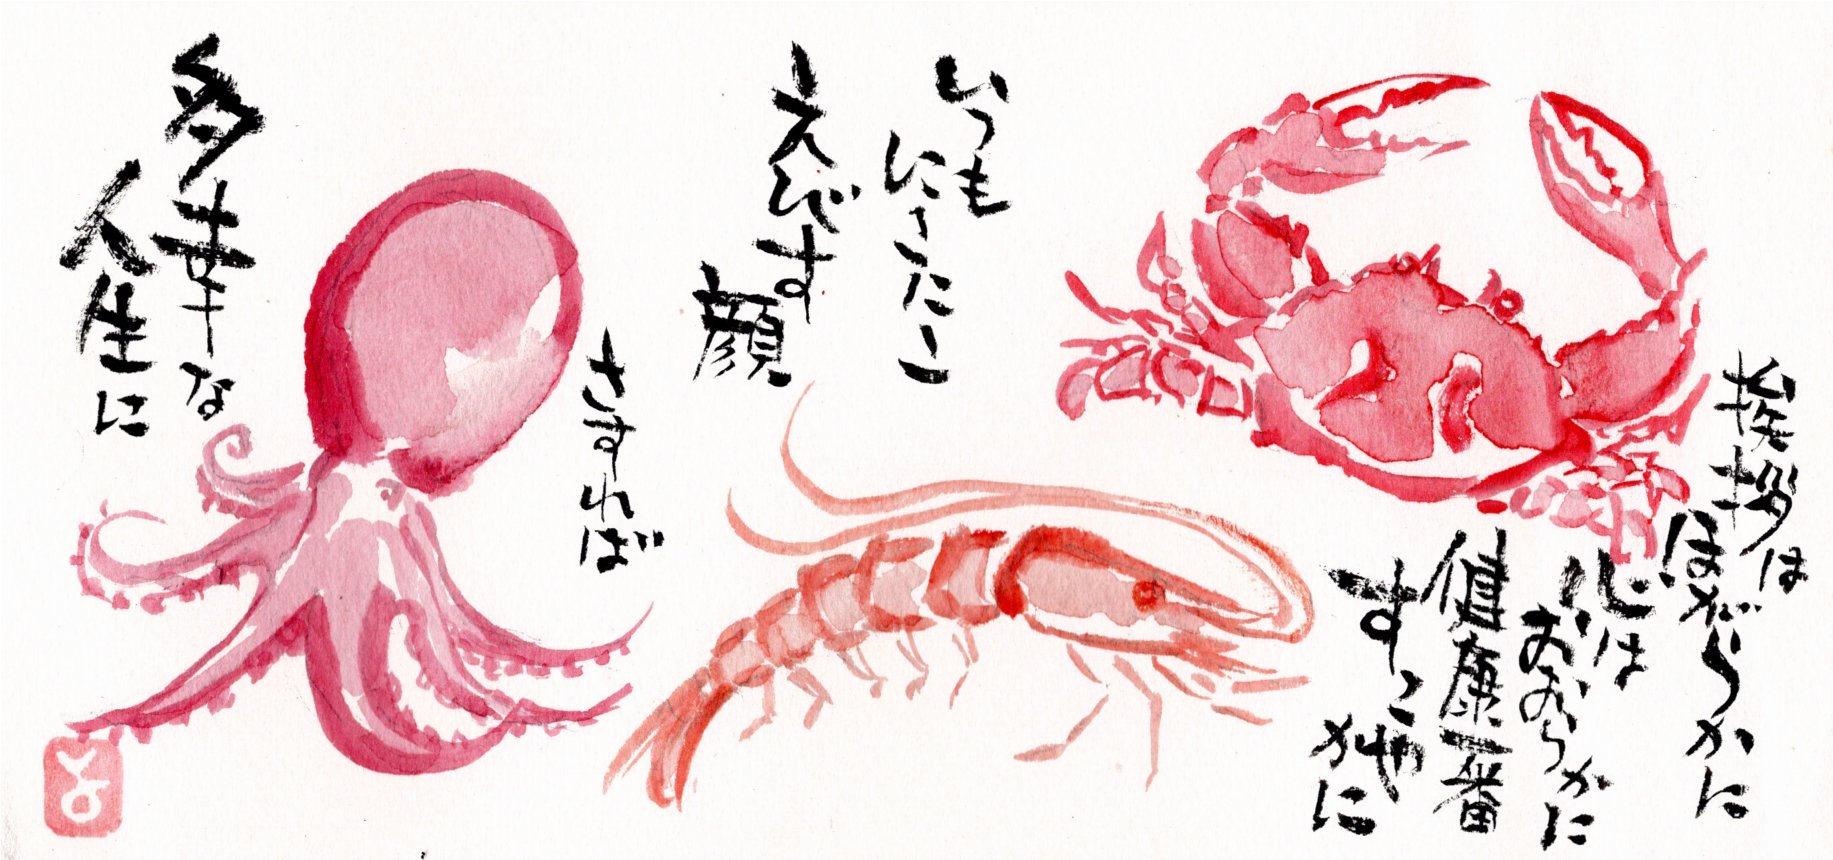 挨拶は
ほがらかに
心は
おおらかに
健康一番
すこや
かに
いつも
にこにこ
えびす
顔
さすれば
多幸な
人生に